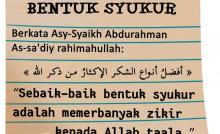 BENTUK SYUKUR
Berkata Asy-Syaikh Abdurahman
As-sa'diy rahimahullah:
« أفضل أنواع الشكر الإكثار من ذكر الله »
"Sebaik-baik bentuk syukur
adalah memerbanyak zikir
kepada Allah taala."